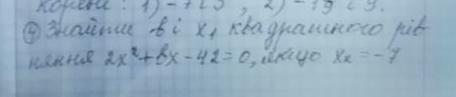 корені: 1) -7 і 5, 2) -19 і 9.
④ Знайти в і x₁ квадратного рів-
няння 2x²+вx-42=0, якщо x₂=-7